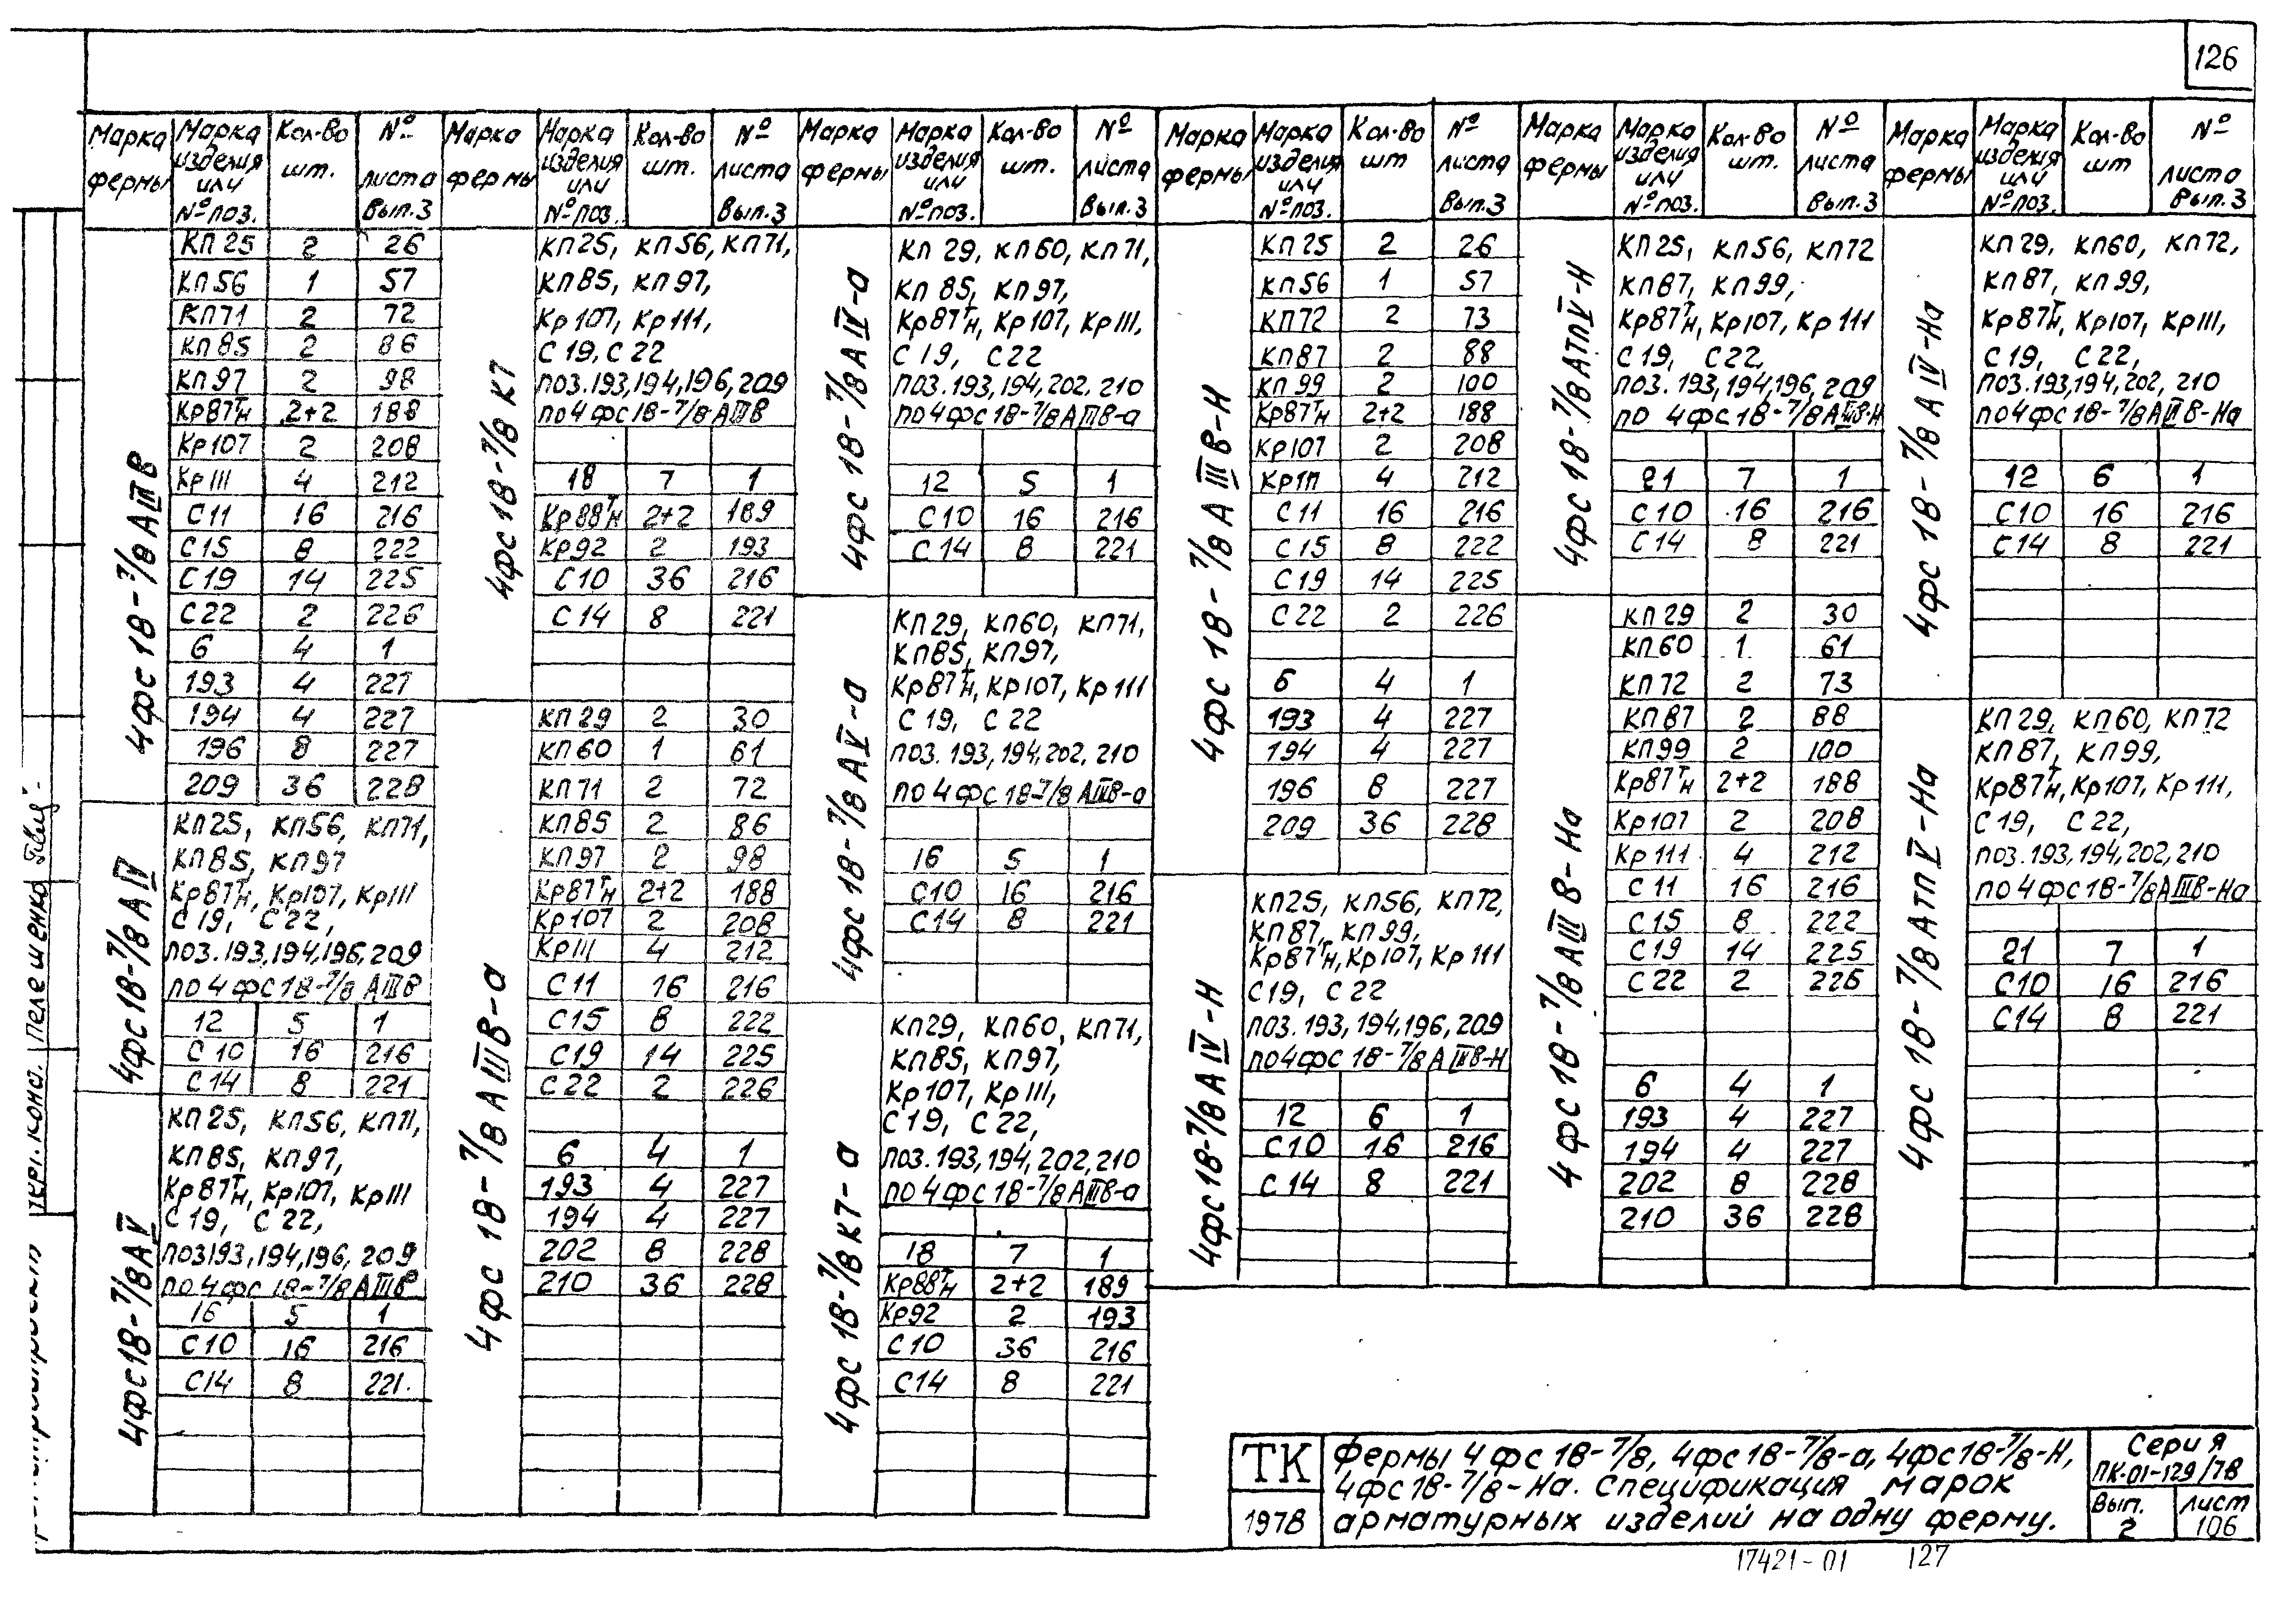 126
Марка фермы | Марка изделия или №поз. | Кол-во шт. | № листа Вып.3
4фс 18-7/8 АIIIВ
КП25 2 26
КП56 1 57
КП71 2 72
КП85 2 86
КП97 2 98
Кр87тн 2+2 188
Кр107 2 208
Кр111 4 212
С11 16 216
С15 8 222
С19 14 225
С22 2 226
6 4 1
193 4 227
194 4 227
196 8 227
209 36 228
4фс18-7/8 АIV
КП25, КП56, КП71,
КП85, КП97
Кр87тн, Кр107, Кр111
С19, С22,
поз.193,194,196,209
по 4фс18-7/8 АIIIВ
12 5 1
С10 16 216
С14 8 221
4фс18-7/8АV
КП25, КП56, КП71,
КП85, КП97,
Кр87тн, Кр107, Кр111
С19, С22,
поз193,194,196, 209
по 4фс 18-7/8 АIIIВ
16 5 1
С10 16 216
С14 8 221.
Марка фермы | Марка изделия или №поз. | Кол-во шт. | № листа Вып.3
4фс 18-7/8 К7
КП25, КП56, КП71,
КП85, КП97,
Кр107, Кр111,
С19, С22
поз.193,194,196,209
по 4фс18-7/8 АIIIВ
18 7 1
Кр88тн 2+2 189
Кр92 2 193
С10 36 216
С14 8 221
4фс 18-7/8 АIIIВ-а
КП29 2 30
КП60 1 61
КП71 2 72
КП85 2 86
КП97 2 98
Кр87тн 2+2 188
Кр107 2 208
Кр111 4 212
С11 16 216
С15 8 222
С19 14 225
С22 2 226
6 4 1
193 4 227
194 4 227
202 8 228
210 36 228
Марка фермы | Марка изделия или №поз. | Кол-во шт. | № листа Вып.3
4фс 18-7/8 АIV-а
КП 29, КП60, КП71,
КП 85, КП97,
Кр87тн, Кр107, Кр111,
С19, С22
поз.193,194,202, 210
по4фс18-7/8 АIIIВ-а
12 5 1
С10 16 216
С14 8 221
4фс 18-7/8 АV-а
КП29, КП60, КП71,
КП85, КП97,
Кр87тн, Кр107, Кр111
С19, С22
поз. 193,194,202, 210
по 4фс 18-7/8 АIIIВ-а
16 5 1
С10 16 216
С14 8 221
4фс 18-7/8 К7-а
КП29, КП60, КП71,
КП85, КП97,
Кр107, Кр111,
С19, С22,
поз.193,194,202,210
по 4фс 18-7/8 АIIIВ-а
18 7 1
Кр88тн 2+2 189
Кр92 2 193
С10 36 216
С14 8 221
Марка фермы | Марка изделия или №поз. | Кол-во шт | № листа Вып.3
4фс 18-7/8 А IIIВ-Н
КП25 2 26
КП56 1 57
КП72 2 73
КП87 2 88
КП99 2 100
Кр87тн 2+2 188
Кр107 2 208
Кр111 4 212
С11 16 216
С15 8 222
С19 14 225
С22 2 226
6 4 1
193 4 227
194 4 227
196 8 227
209 36 228
4фс18-7/8 АIV-Н
КП25, КП56, КП72,
КП87, КП99,
Кр87тн, Кр107, Кр111
С19, С22
поз.193,194,196,209
по4фс 18-7/8 АIIIВ-Н
12 6 1
С10 16 216
С14 8 221
Марка фермы | Марка изделия или №поз. | Кол-во шт. | № листа Вып.3
4фс 18-7/8 АтпV-Н
КП25, КП56, КП72
КП87, КП99,
Кр87тн, Кр107, Кр111
С19, С22,
поз.193,194,196, 209
по 4фс 18-7/8 АIIIВ-Н
21 7 1
С10 16 216
С14 8 221
4фс 18-7/8 АIIIВ-На
КП29 2 30
КП60 1 61
КП72 2 73
КП87 2 88
КП99 2 100
Кр87тн 2+2 188
Кр107 2 208
Кр111 4 212
С11 16 216
С15 8 222
С19 14 225
С22 2 226
6 4 1
193 4 227
194 4 227
202 8 228
210 36 228
Марка фермы | Марка изделия или №поз. | Кол-во шт | № листа Вып.3
4фс 18-7/8 АIV-На
КП29, КП60, КП72,
КП87, КП99,
Кр87тн, Кр107, Кр111,
С19, С22,
поз.193,194,202, 210
по4фс 18-7/8 АIIIВ-На
12 6 1
С10 16 216
С14 8 221
4фс 18-7/8 АтпV-На
КП29, КП60, КП72
КП87, КП99,
Кр87тн, Кр107, Кр111,
С19, С22,
поз.193,194,202,210
по4фс18-7/8 АIIIВ-На
21 7 1
С10 16 216
С14 8 221
Пелешенко
ТК
1978
Фермы 4фс 18-7/8, 4фс18-7/8-а, 4фс18-7/8-Н,
4фс18-7/8-На. Спецификация марок
арматурных изделий на одну ферму.
Серия
ПК-01-129/78
Вып.
2
Лист
106
17421-01 127